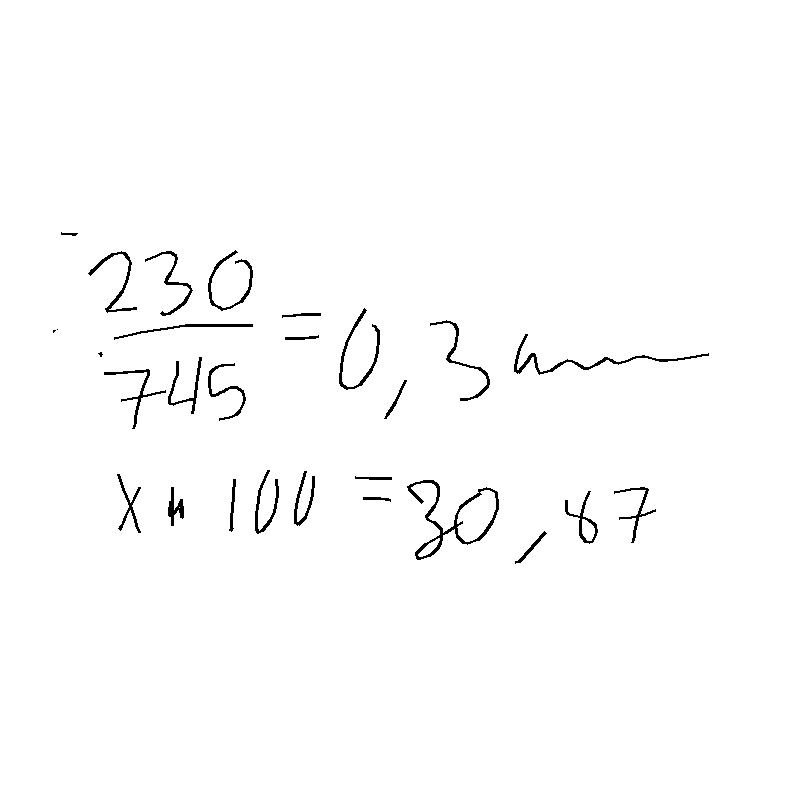 230
745 = 0,3
x · 100 = 30,87